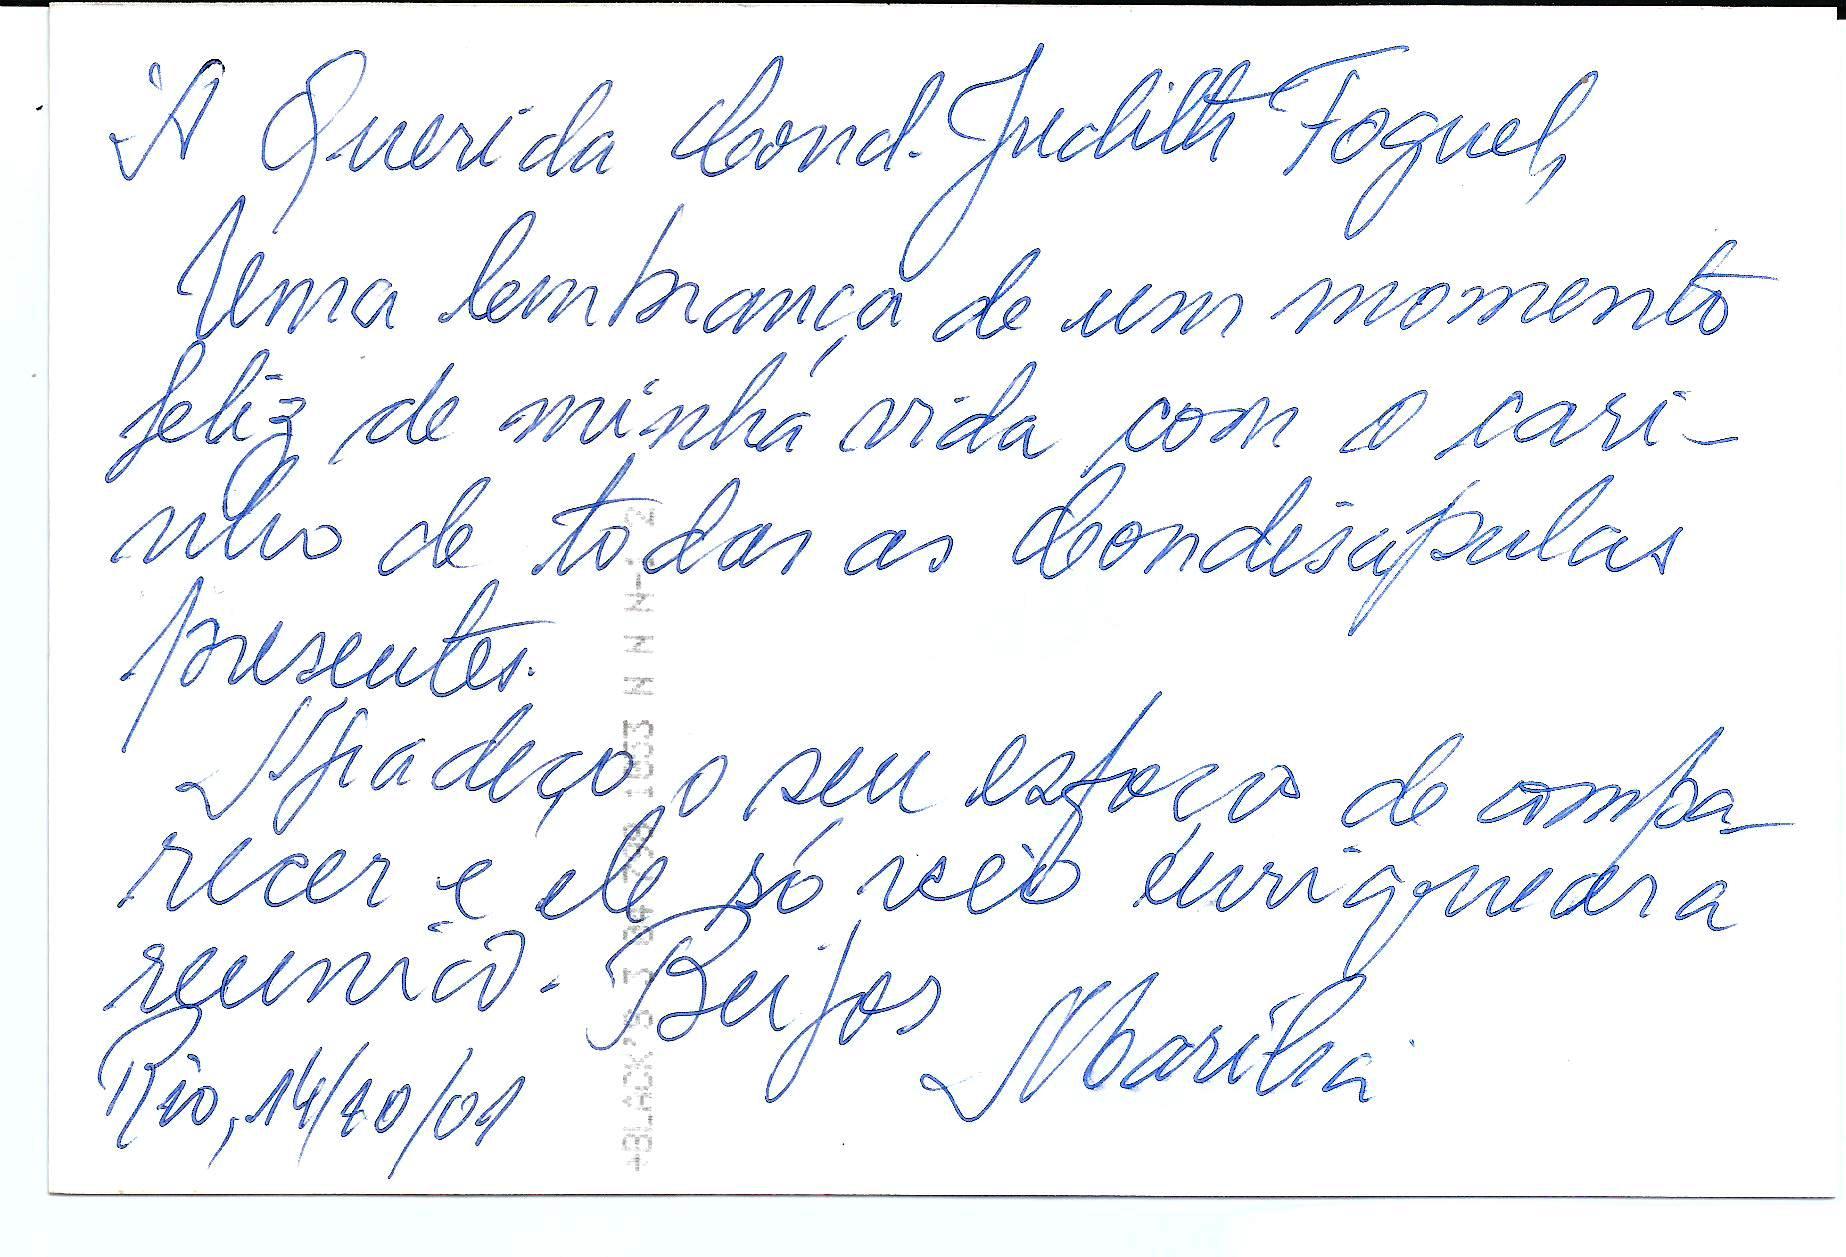 À Querida Cond. Judith Foguel,
Uma lembrança de um momento
feliz de minha vida com o cari-
nho de todas as Condiscípulas
presentes.
Agradeço o seu esforço de compa-
recer e ele só veio enriquecer a
reunião. Beijos Marília
Rio, 14/10/01